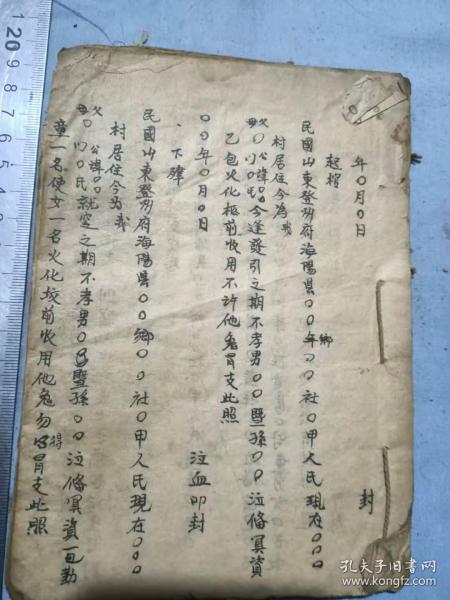 年〇月〇日 封
起棺
民國山東登州府海陽県〇〇年鄉〇〇社〇甲人民現在〇〇〇
村居住今為我
父母〇公諱〇〇〇氏今逢發引之期不孝男〇〇暨孫〇〇泣俻冥資
乙包火化柩前收用不許他鬼冒支此照
〇〇年〇月〇日 泣血叩封
下葬
民國山東登州府海陽県〇〇鄉〇〇社〇甲人民現在〇〇〇
村居住今為我
父母〇公諱〇〇〇氏就窆之期不孝男〇〇暨孫〇〇泣俻冥資一包勤
童一名使女一名火化坟前收用他鬼勿得冒支此照
120 9 8 7 6 5 4 3
孔夫子旧书网
www.kongfz.com